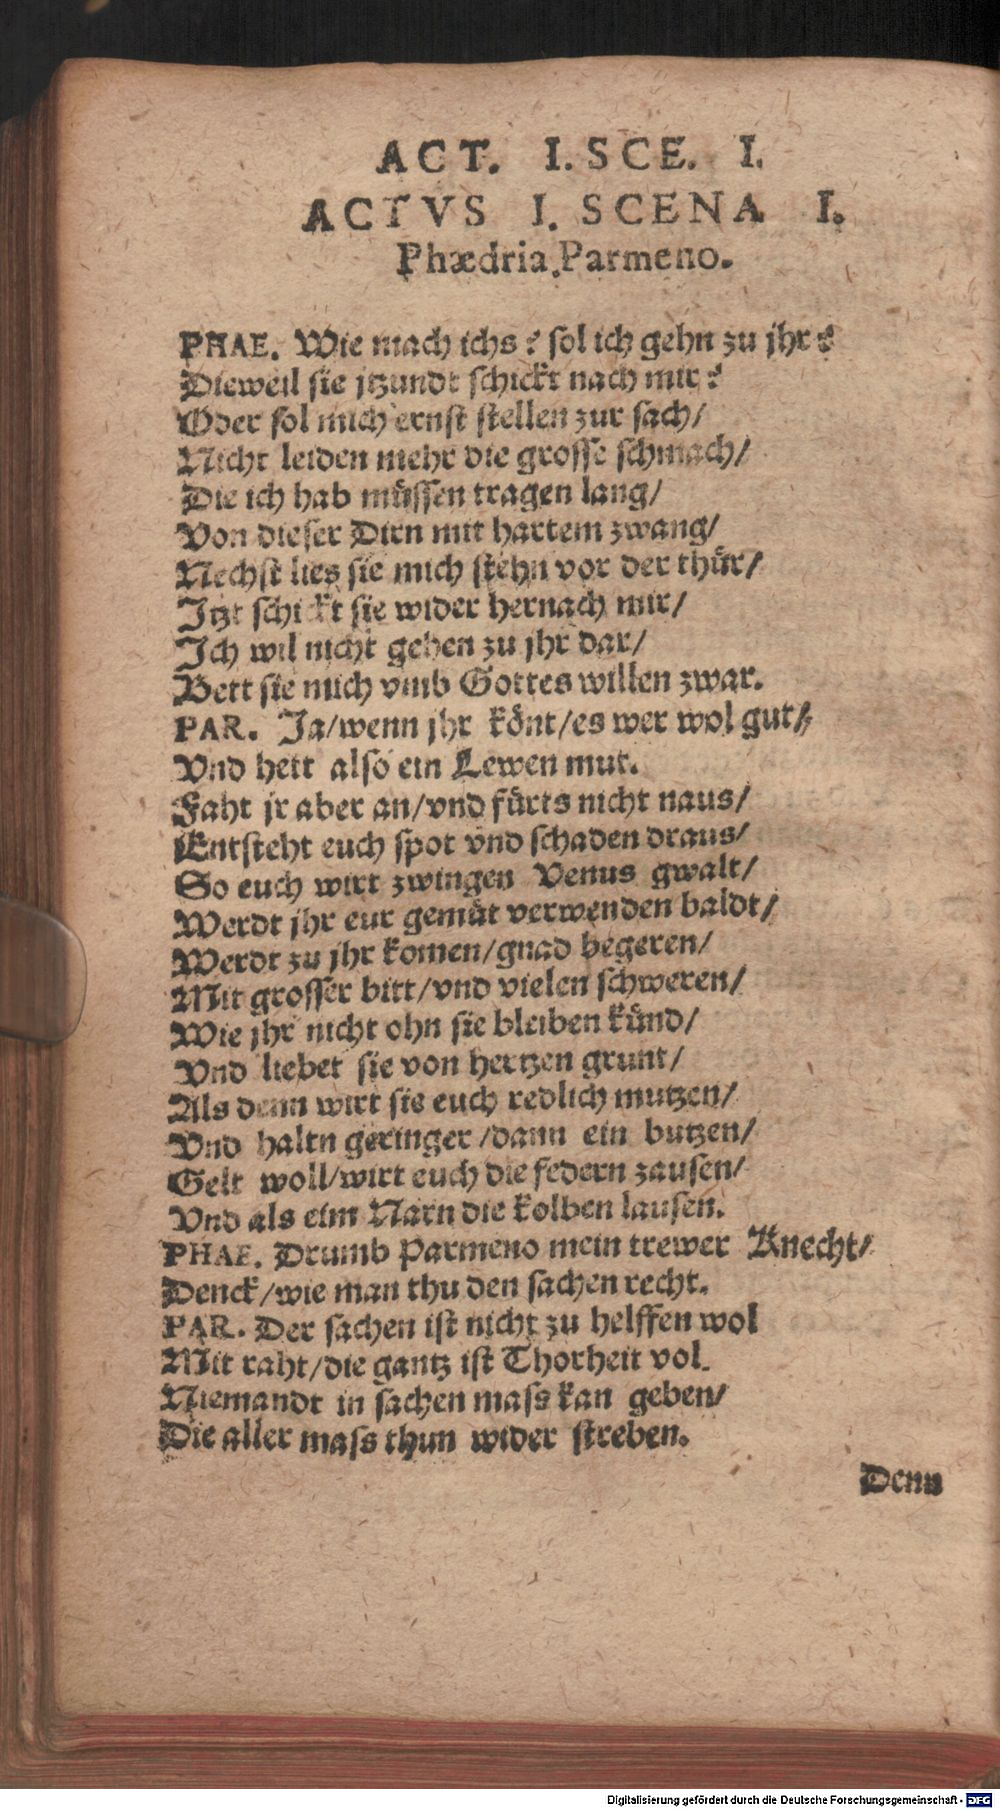 ACT. I. SCE. I.
ACTVS I. SCENA I.
Phædria. Parmeno.
PHAE. Wie mach ichs? sol ich gehn zu jhr?
Dieweil sie jtzundt schickt nach mir?
Oder sol mich ernst stellen zur sach/
Nicht leiden mehr die grosse schmach/
Die ich hab müssen tragen lang/
Von dieser Dirn mit hartem zwang/
Nechst lies sie mich stehn vor der thür/
Itzt schickt sie wider hernach mir/
Ich wil nicht gehen zu jhr dar/
Bett sie mich vmb Gottes willen zwar.
PAR. Ja/wenn jhr könt/es wer wol gut/
Vnd hett also ein Lewen mut.
Faht jr aber an/vnd fürts nicht naus/
Entsteht euch spot vnd schaden draus/
So euch wirt zwingen Venus gwalt/
Werdt jhr eur gemüt verwenden baldt/
Werdt zu jhr komen/gnad begeren/
Mit grosser bitt/vnd vielen schweren/
Wie jhr nicht ohn sie bleiben künd/
Vnd liebet sie von hertzen grunt/
Als denn wirt sie euch redlich mutzen/
Vnd haltn geringer/dann ein butzen/
Gelt woll/wirt euch die federn zausen/
Vnd als eim Narn die kolben lausen.
PHAE. Drumb Parmeno mein trewer Knecht/
Denck/wie man thu den sachen recht.
PAR. Der sachen ist nicht zu helffen wol
Mit raht/die gantz ist Thorheit vol.
Niemandt in sachen mass kan geben/
Die aller mass thun wider streben.
Denn
Digitalisierung gefördert durch die Deutsche Forschungsgemeinschaft - DFG